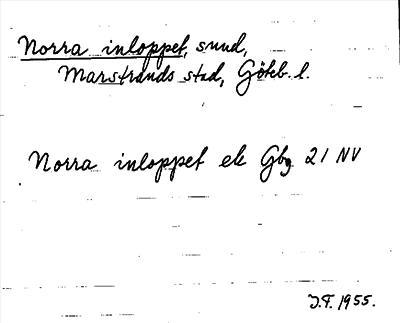 Norra inloppet, sund,
Marstrands stad, Göteb. l.
Norra inloppet ek Gbg 21 NV
J.F. 1955.